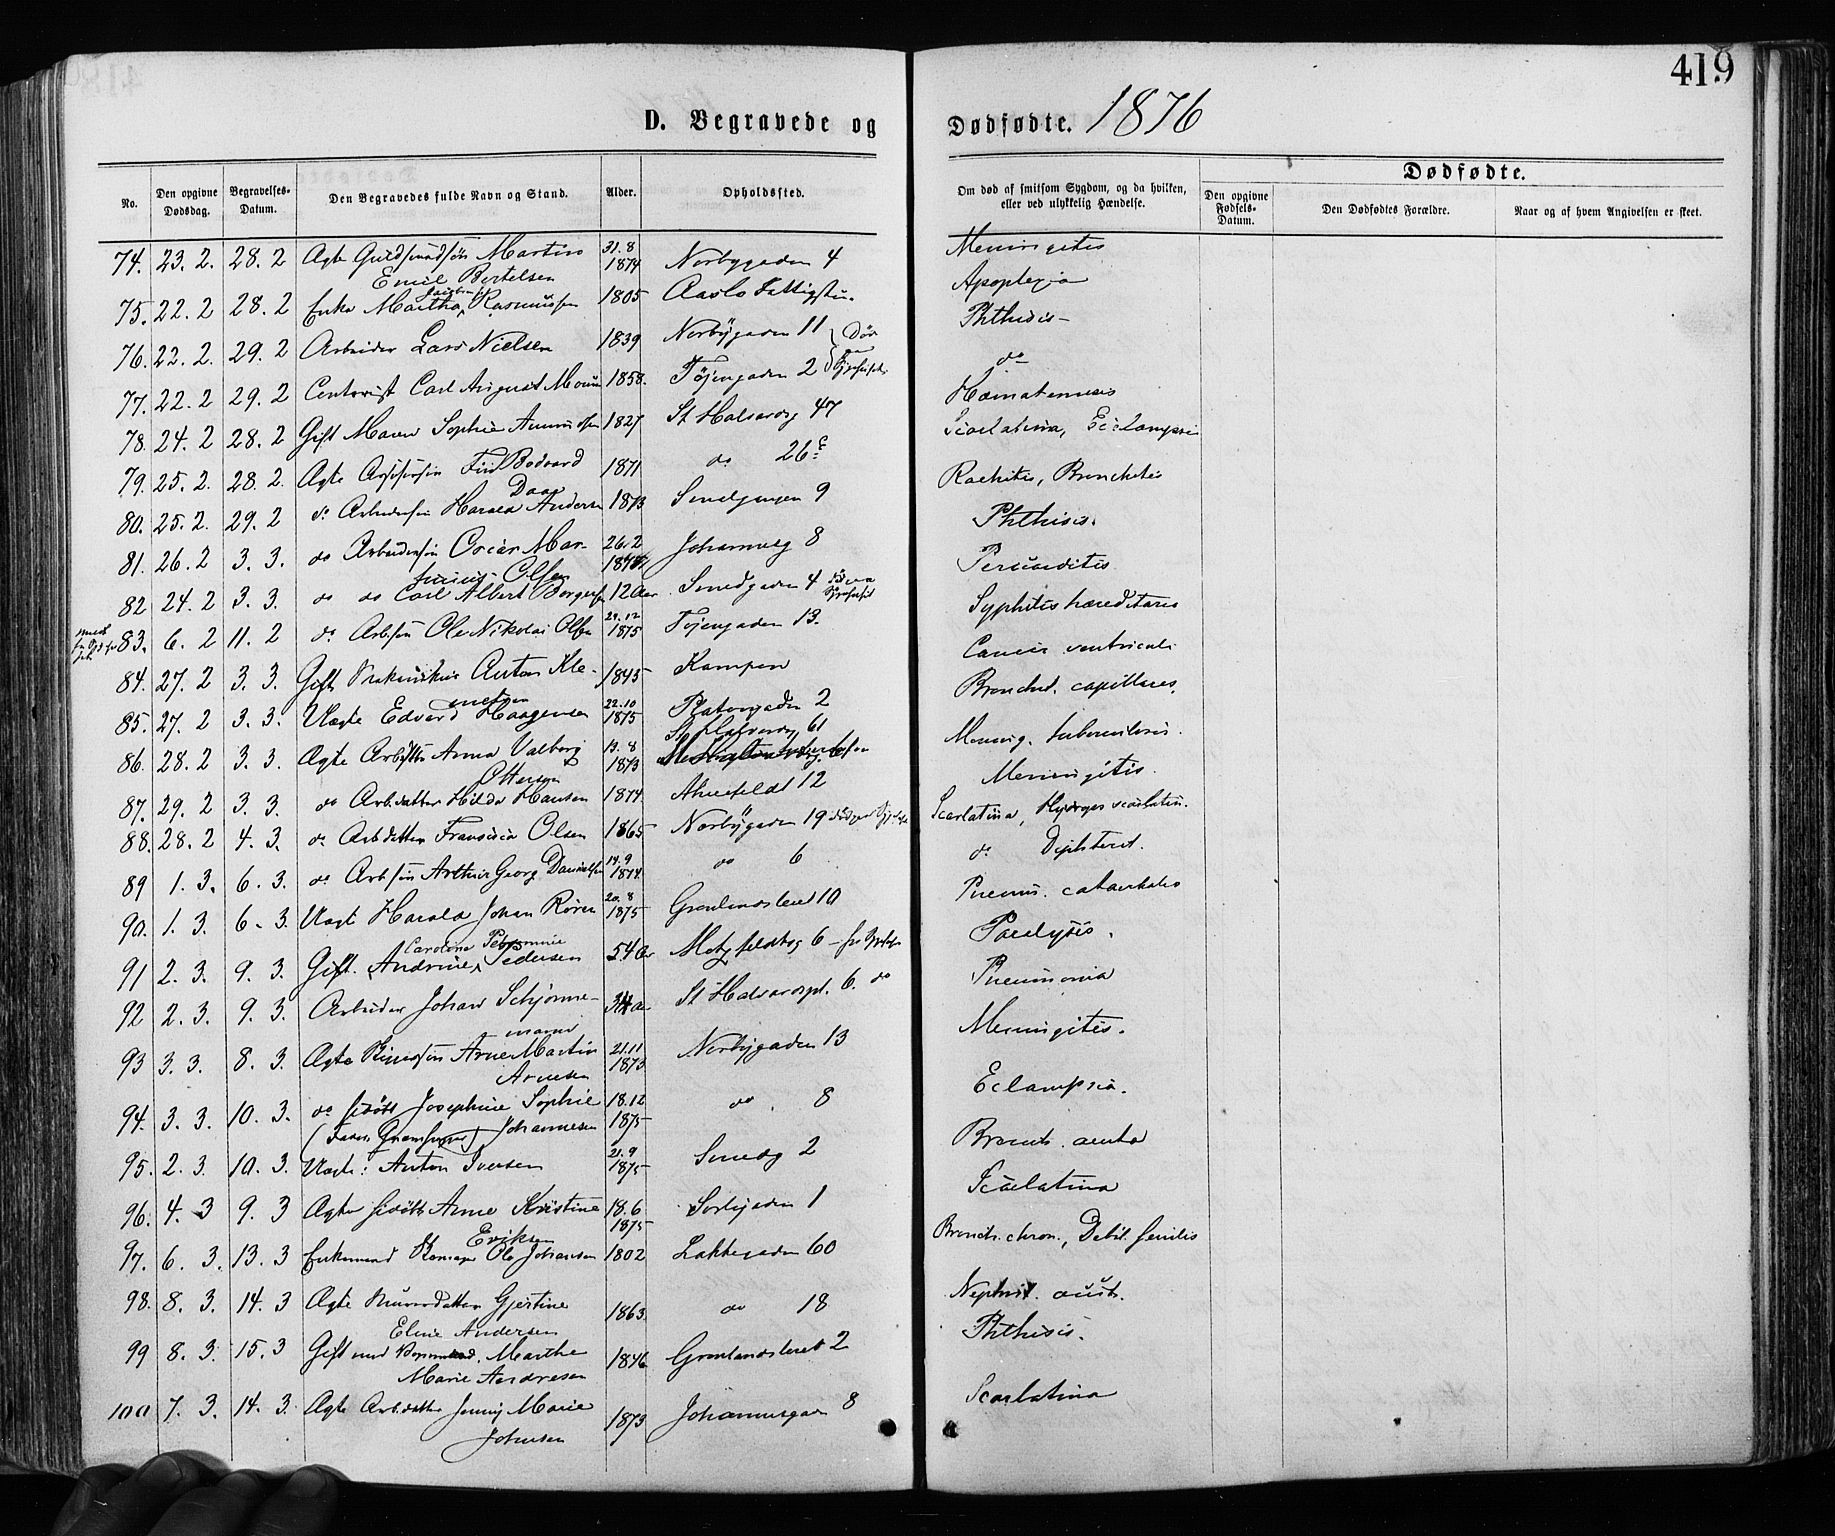 419
D. Begravede og Dødfødte. 1876
No.
Den opgivne Dødsdag.
Begravelses-Datum.
Den Begravedes fulde Navn og Stand.
Alder.
Opholdssted.
Om død af smitsom Sygdom, og da hvilken, eller ved ulykkelig Hændelse.
Dødfødte.
Den opgivne Fødsels-Datum.
Den Dødfødtes Forældre.
Naar og af hvem Angivelsen er skeet.
74. 23. 2. 28. 2 Ægte Martin 31.8 1874 Norbygaden 4 Meningitis
Emil Bertelsen
75. 22. 2 28. 2 Enke Martha Rasmussen 1805 Aaslo Apoplexia
76. 22. 2. 29. 2 Arbeider Lars Nielsen 1839 Norbygaden 11 Phthisis
77. 22. 2 29. 2 Carl August 1858. Tøjengaden 2 do
78. 24. 2 28. 2 Gift Maren Sophie 1827 St Halvardsg 47 Hæmatemesis
79. 25. 2. 28. 2. Ægte 1871 do 26 c Scarlatina, Eclampsi
80. 25. 2. 29. 2 do Arbeidersøn Harald Andersen 1873 Smalgangen 9 Rachitis, Bronchitis
81. 26. 2 3. 3. do Arbeidersøn Oscar Mar- 26.2 Johannesg 8 Phthisis.
tinius Olsen
82 24. 2 3. 3. do do Carl Albert Borgersen 12 Aar Smedgaden 4 Pericarditis
83. 6. 2 11. 2 do Arb.søn Ole Nikolai Olsen 29.12 1875 Tøjengaden 13. Syphilis hæreditaria
84. 27. 2 3. 3. Gift Anton Kle- 1845 Kampen Cancer ventriculi
metsen
85. 27. 2 3. 3. Uægte Edvard Haagensen 22.10 1875 Platousgaden 2 Bronchit. capillares.
86. 28. 2 3. 3. Ægte Anna Valborg 13.8 1873 St Halvardsg 61 Mening. tuberculosis.
Ottersen
87. 29. 2 3. 3. do Arb.datter Hilda Hansen 1874 Ahlefeldt 12 Meningitis.
88. 28. 2 4. 3. do Arb.datter Fransisca Olsen 1865 Norbygaden 19 Scarlatina, Hydrops scarlatin.
89 1. 3. 6. 3. do Arb.søn Arthur Georg Danielsen 19.9 1874 do 6 do Diphterit.
90. 1. 3. 6. 3. Uægte Harald Johan 20.8 1875 Grønlandsleret 10 Pneum. catarrhalis
Caroline
91 2. 3. 9. 3. Gift Andrine Pedersen 54 Aar Motzfeldtsg 6 Paralysis.
92 2. 3. 9. 3. Arbeider Johan 34 Aar St Halvardspl. 6. do Pneumonia
93 3. 3. 8. 3. Ægte Arne Martin 21.11 1873 Norbygaden 13 Meningitis.
Arnesen
94. 3. 3. 10. 3. do Josephine Sophie 18.12 1875 do 8 Eclampsia.
Johannesen
95. 2. 3. 10. 3. Uægte: Anton Iversen 21.9 1875 Smedg 2 Bronch. acuta
96. 4. 3 9. 3 Ægte Anne Kristine 18.6 1875 Sørligaden 1 Scarlatina
Eriksen
97. 6. 3. 13. 3 Enkemand Ole Johansen 1802 Lakkegaden 60 Bronch. chron., Debil. senilis
98. 8. 3. 14. 3 Ægte Murerdatter Gjertine 1863 do 18 Nephrit. acut.
Eline Andersen
99 8. 3. 15. 3 Gift med Marthe 1846 Grønlandsleret 2 Phthisis.
Marie Andresen
100 7. 3. 14. 3. Ægte Arb.datter Jenny Marie 1873 Johannesgaden 8 Scarlatina
Johnsen